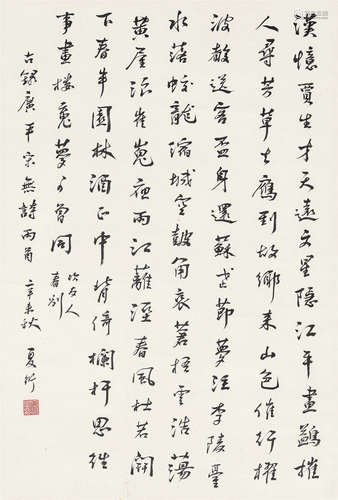 漢憶賈生才天遠文星隱江平畫鷁摧
人尋芳草去應到故鄉來山色催行櫂
波聲送客盃身還蘇武節夢泣李陵臺
水落蛟龍縮城空鼓角哀蒼梧雲浩蕩
黃屋添崔嵬夜雨江蘺溼春風杜若開
下春半園林酒正中背倚欄杆思往
事畫樓魂夢可曾同 次友人春別
右錄廣平宋無詩兩首 辛未秋 夏衍